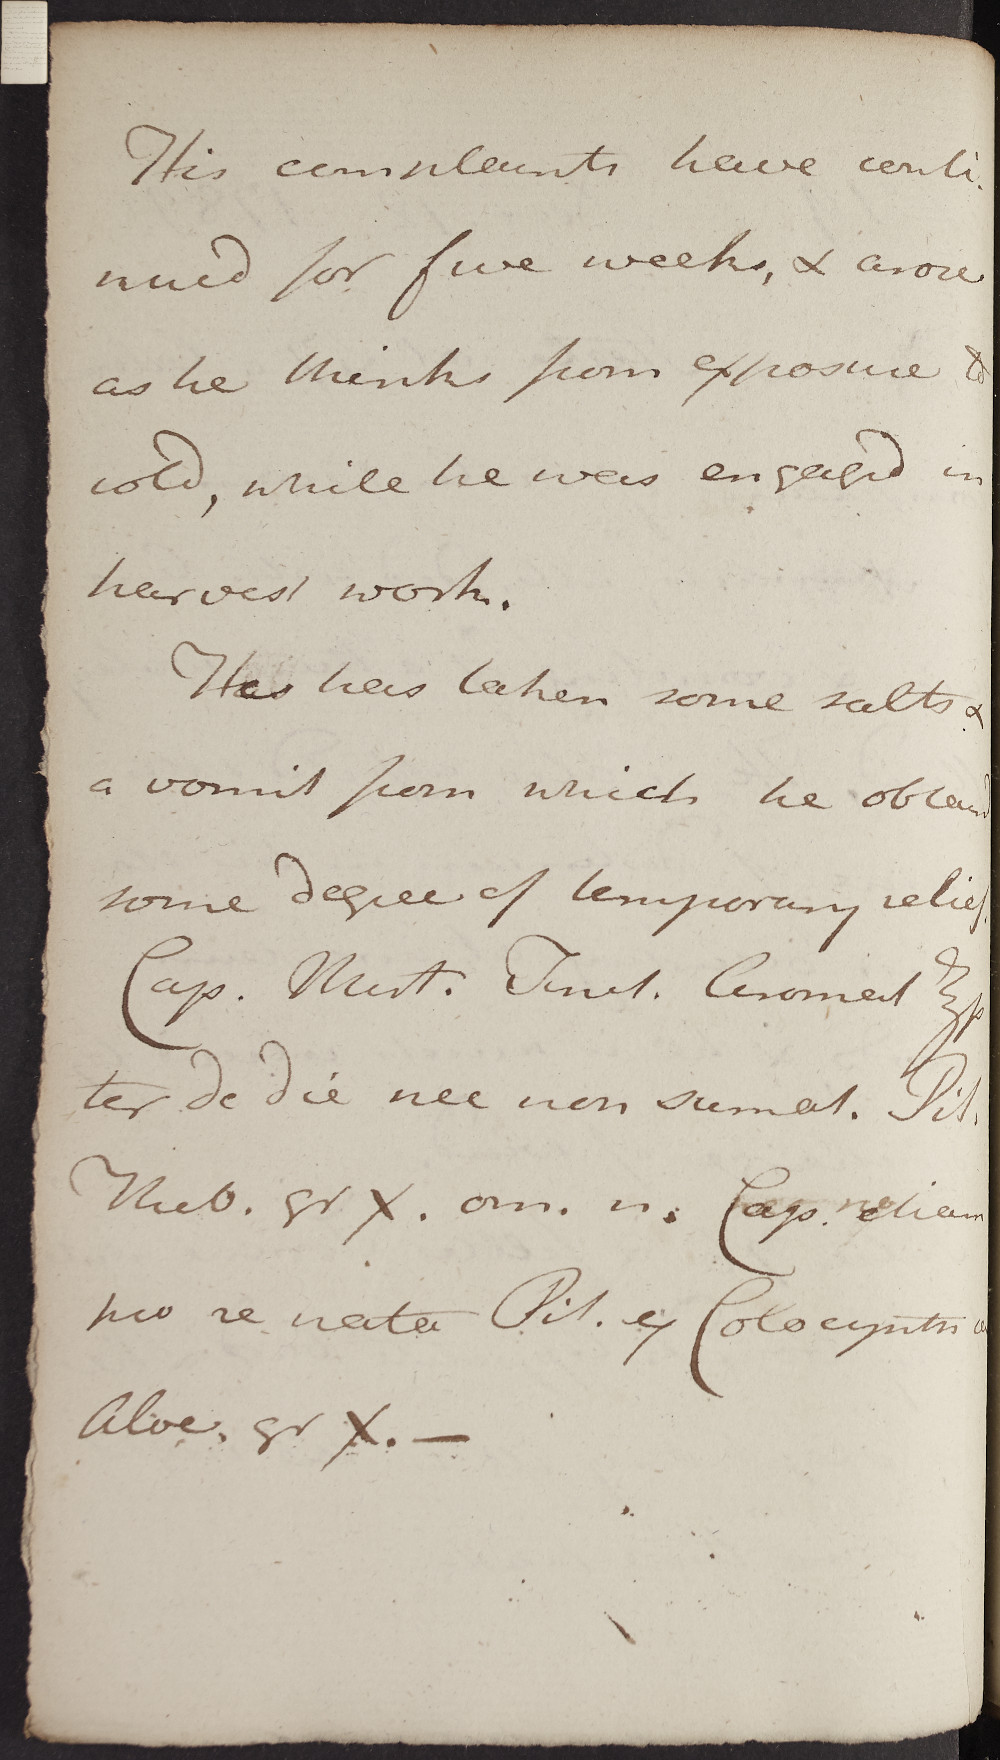 His complaints have conti-
nued for five weeks, & arose
as he thinks from exposure to
cold, while he was engag'd in
harvest work.
Has has taken some salts &
a vomit from which he obtain'd
some degree of temporary relief.
Cap. Mist. Tinct. Aromat
ter de die nec non sumat. Pil.
Theb. gr X. om. n. Cap. etiam
pro re nata Pil. ex Colocynth c
Aloe. gr X. —